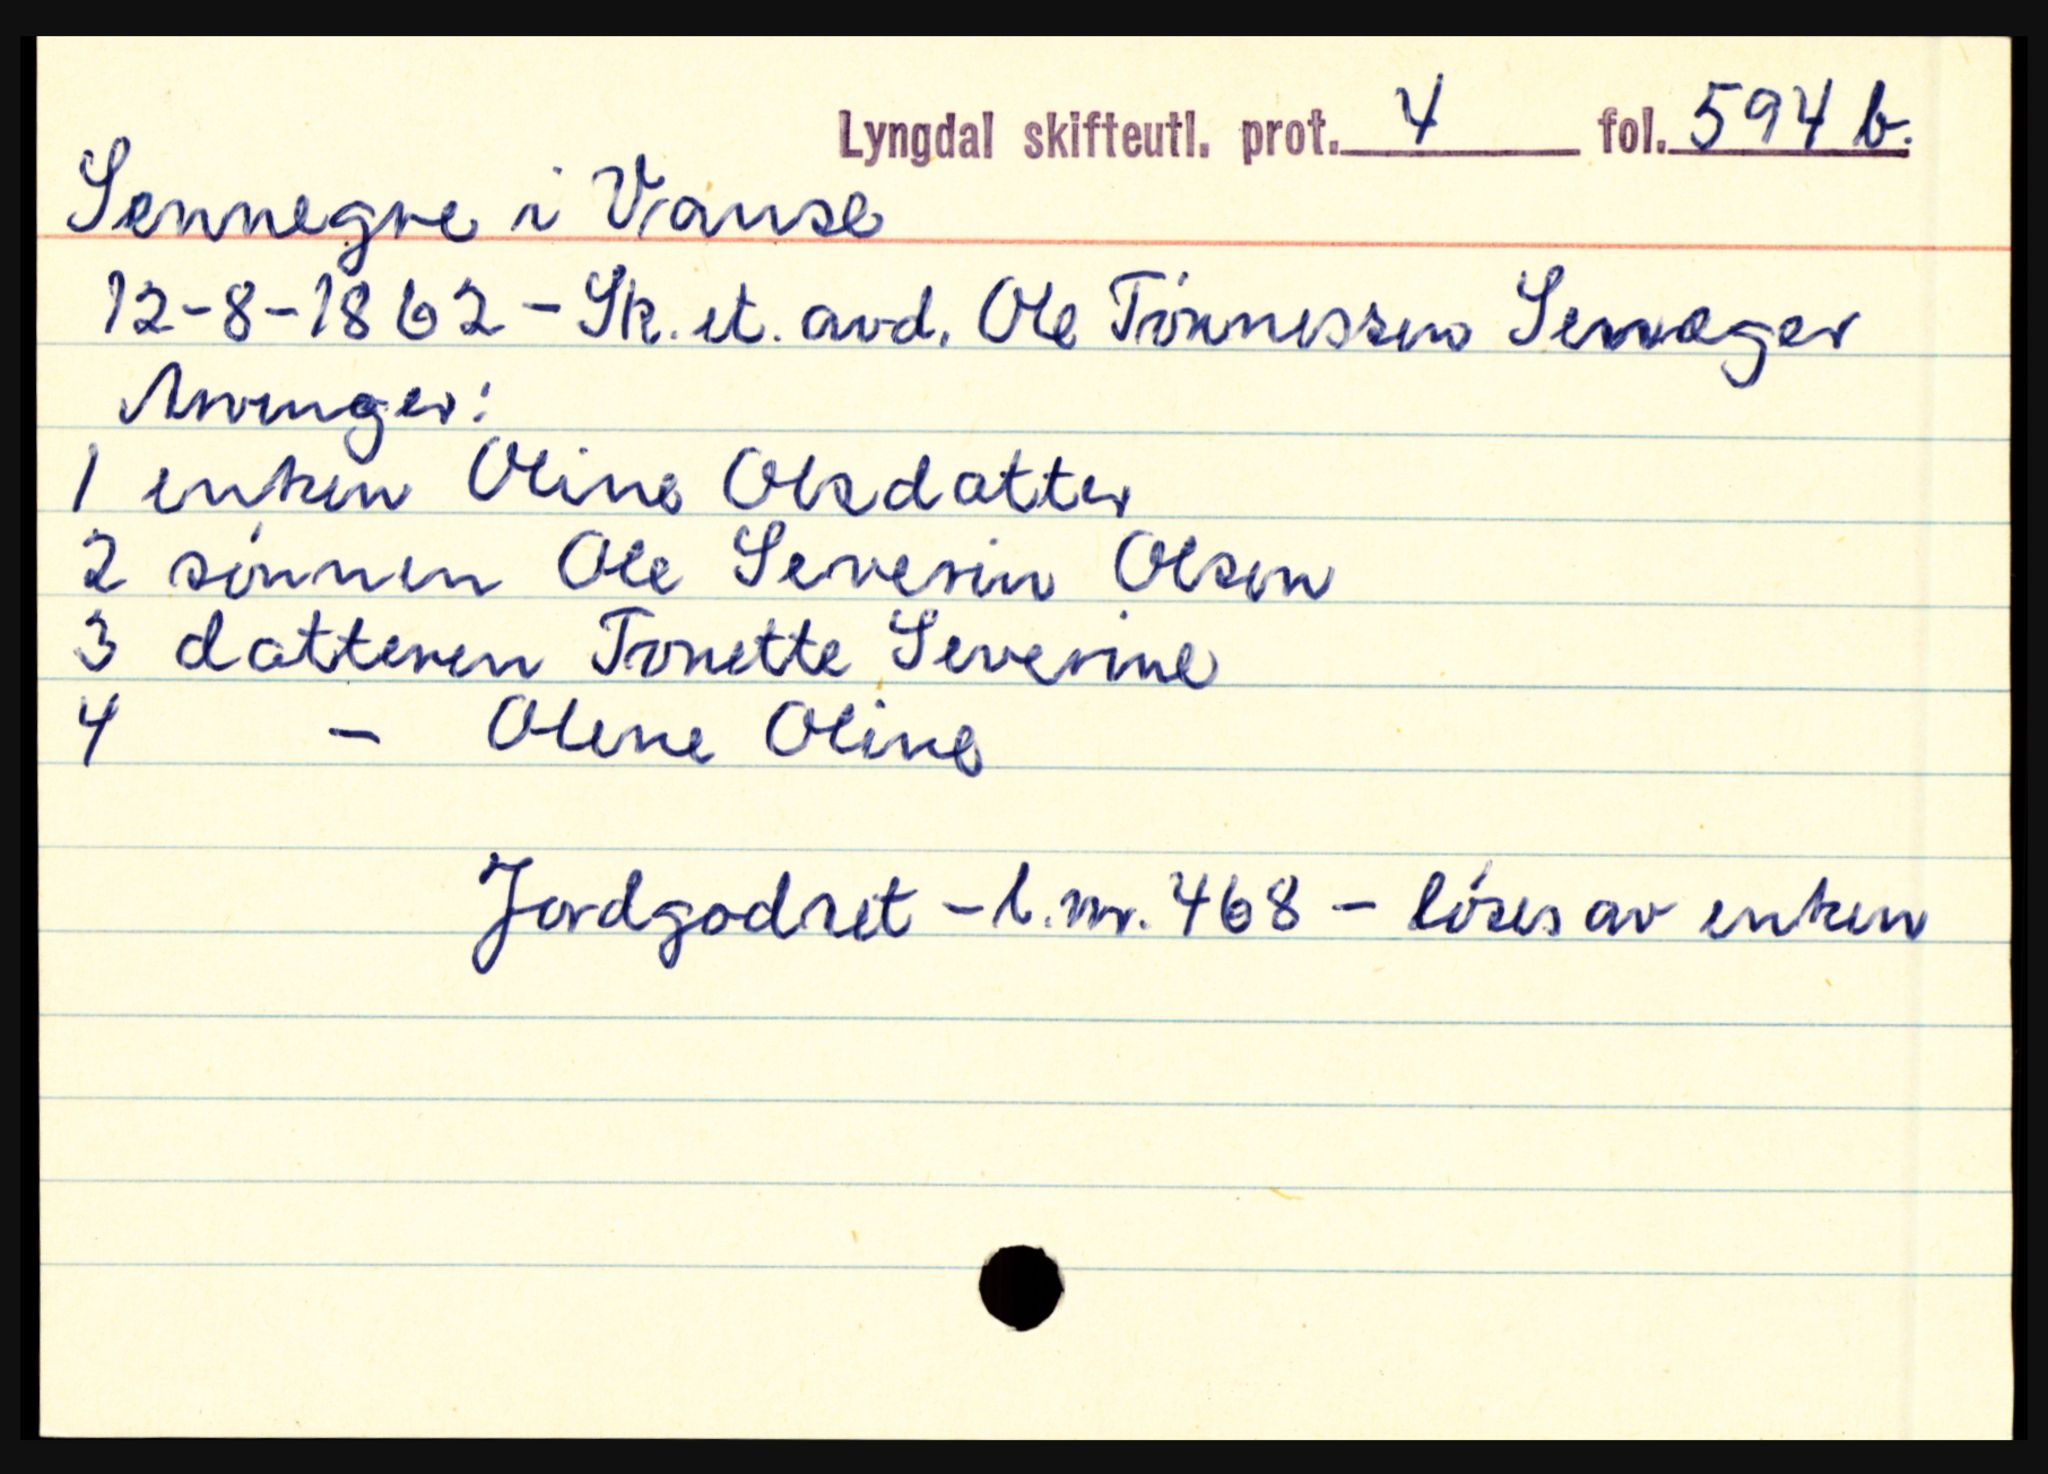 Lyngdal skifteutl. prot. 4 fol. 594 b.
Sennegre i Vanse
12-8-1862 - Sk. et. avd. Ole Tönnessen Sennæger
Arvinger:
1 enken Oline Olsdatter
2 sönnen Ole Severin Olsen
3 datteren Tonette Severine
4 - Olene Oline
Jordgodset - l.nr. 468 - löses av enken